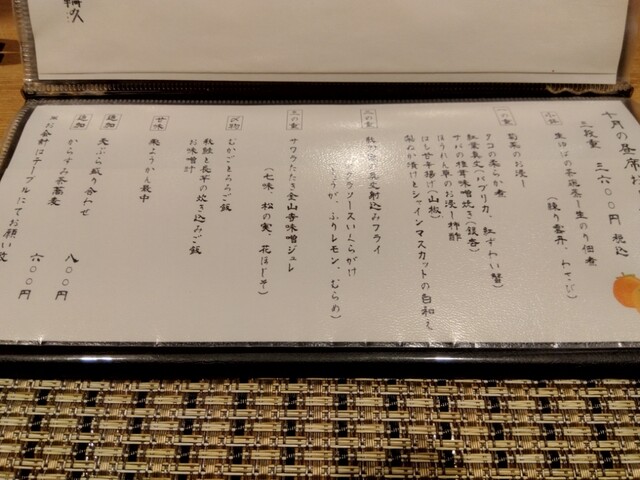 十月の昼席
三段重 三六〇〇円 税込
小鉢
生ゆばの茶碗蒸し 生のり佃煮
(練り雲丹、わさび)
一の重
菊菜のお浸し
タコの柔らか煮
紅葉真丈(パプリカ、紅ずわい蟹)
サバの椎茸味噌焼き(銀杏)
ほうれん草のお浸し 柿酢
はも甘辛揚げ(山椒)
梨ぬか漬けとシャインマスカットの白和え
二の重
真丈射込みフライ
ソースいくらがけ
ふりレモン、むらめ)
三の重
サワラたたき 金山寺味噌ジュレ
(七味、松の実、花ほじそ)
〆物
むかごとろろご飯
秋鮭と長芋の炊き込みご飯
お味噌汁
甘味
栗ようかん最中
追加
天ぷら盛り合わせ 八〇〇円
追加
からすみ茶蕎麦 六〇〇円
※お会計はテーブルにてお願い致